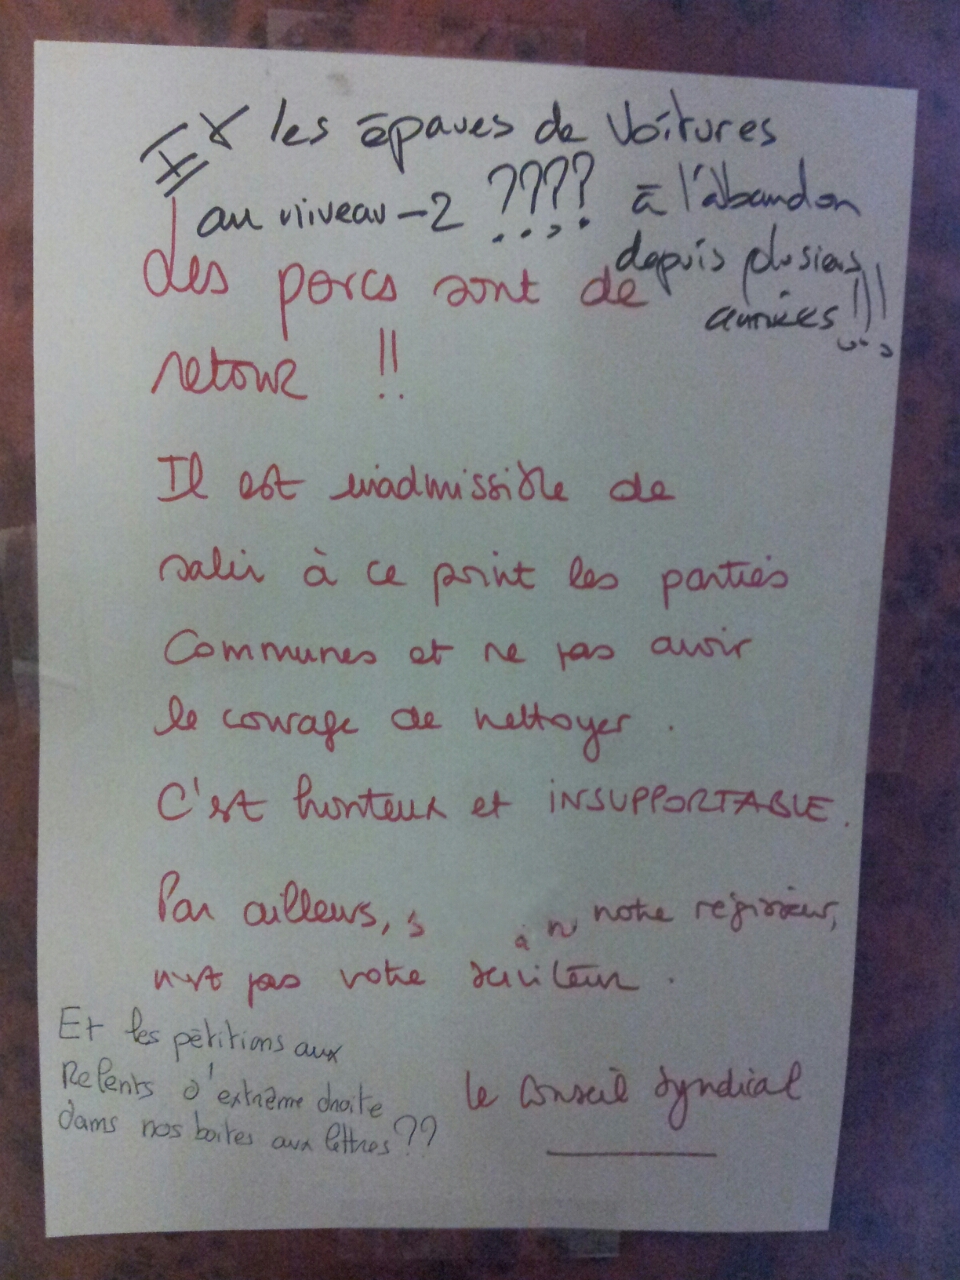 Et les épaves de Voitures
au niveau -2 ???? à l'abandon
depuis plusieurs
années !!!
Les porcs sont de
retour !!
Il est inadmissible de
salir à ce point les parties
communes et ne pas avoir
le courage de nettoyer.
C'est honteux et INSUPPORTABLE.
Par ailleurs, notre régisseur,
n'est pas votre serviteur.
Le Conseil Syndical
Et les pétitions aux
Relents d'extrême droite
dans nos boites aux lettres ??